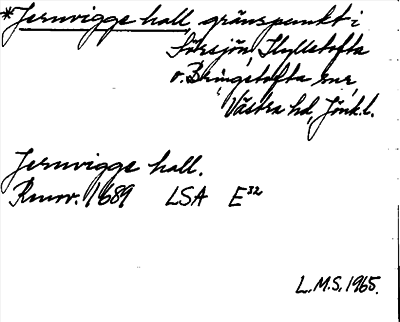 *Jernvigge hall, gränspunkt i
Försjön, Hylletofta
o. Bringetofta snr,
Västra hd, Jönk. l.
Jernvigge hall.
Renov. 1689 LSA E³²
L.M.S. 1965.